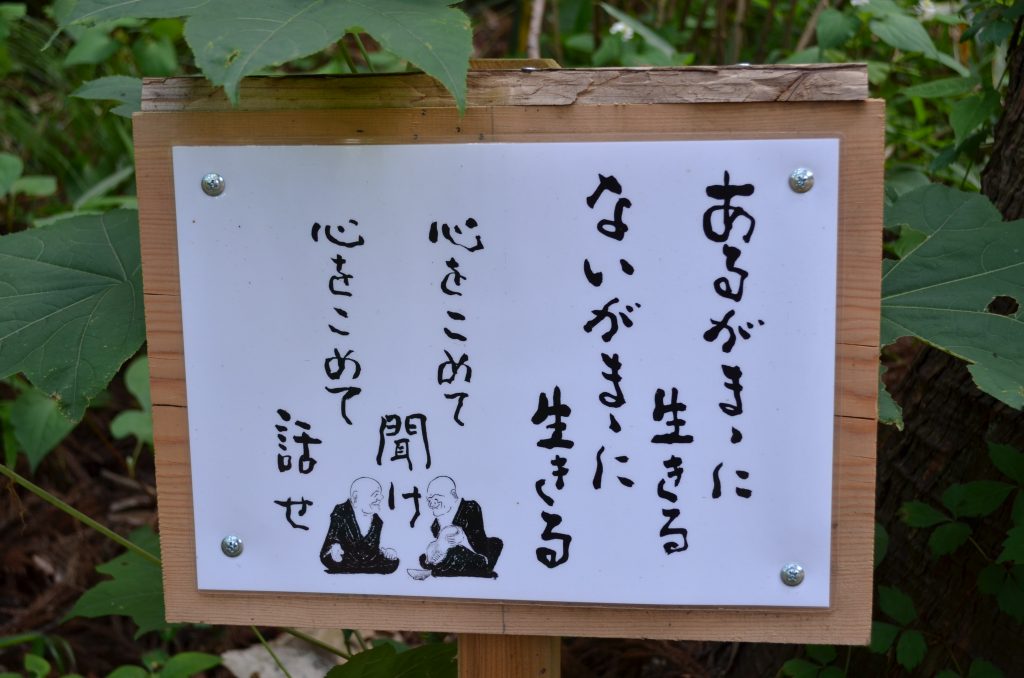 あるがまゝに
生きる
ないがまゝに
生きる
心をこめて
聞け
心をこめて
話せ